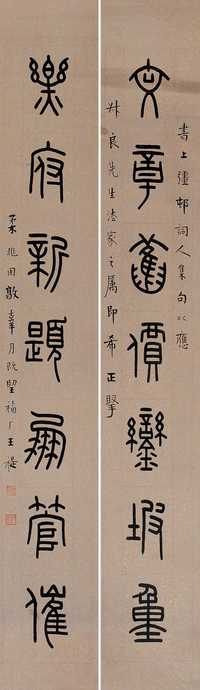 書上彊邨詞人集句以應
文章舊價鑾坡重
叔良先生法家之屬即希正掔
樂府新題鳳管催
柔兆困敦辜月既望福厂王禔